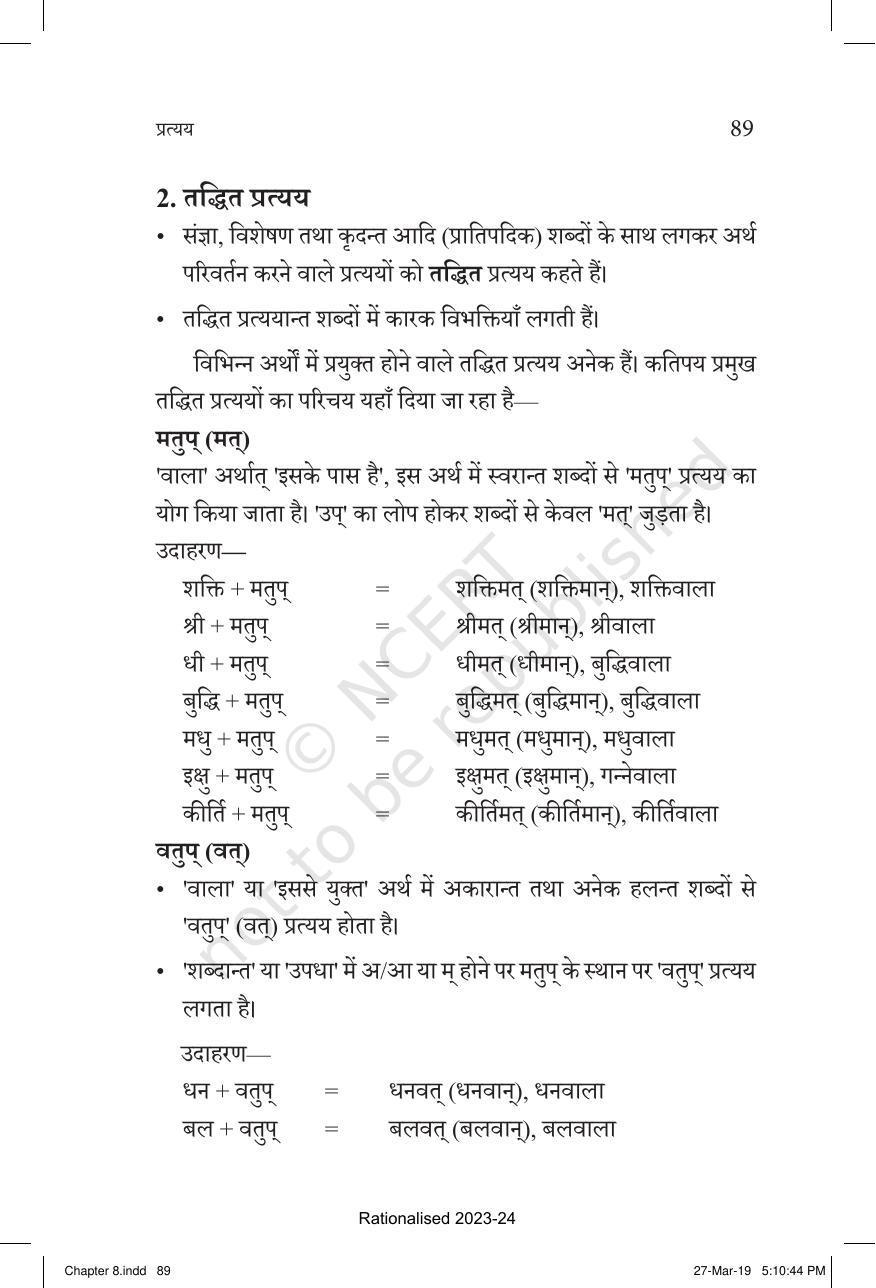 प्रत्यय 89
2. तद्धित प्रत्यय
• संज्ञा, विशेषण तथा कृदन्त आदि (प्रातिपदिक) शब्दों के साथ लगकर अर्थ
परिवर्तन करने वाले प्रत्ययों को तद्धित प्रत्यय कहते हैं।
• तद्धित प्रत्ययान्त शब्दों में कारक विभक्तियाँ लगती हैं।
विभिन्न अर्थों में प्रयुक्त होने वाले तद्धित प्रत्यय अनेक हैं। कतिपय प्रमुख
तद्धित प्रत्ययों का परिचय यहाँ दिया जा रहा है—
मतुप् (मत्)
'वाला' अर्थात् 'इसके पास है', इस अर्थ में स्वरान्त शब्दों से 'मतुप्' प्रत्यय का
योग किया जाता है। 'उप्' का लोप होकर शब्दों से केवल 'मत्' जुड़ता है।
उदाहरण—
शक्ति + मतुप् = शक्तिमत् (शक्तिमान्), शक्तिवाला
श्री + मतुप् = श्रीमत् (श्रीमान्), श्रीवाला
धी + मतुप् = धीमत् (धीमान्), बुद्धिवाला
बुद्धि + मतुप् = बुद्धिमत् (बुद्धिमान्), बुद्धिवाला
मधु + मतुप् = मधुमत् (मधुमान्), मधुवाला
इक्षु + मतुप् = इक्षुमत् (इक्षुमान्), गन्नेवाला
कीर्ति + मतुप् = कीर्तिमत् (कीर्तिमान्), कीर्तिवाला
वतुप् (वत्)
• 'वाला' या 'इससे युक्त' अर्थ में अकारान्त तथा अनेक हलन्त शब्दों से
'वतुप्' (वत्) प्रत्यय होता है।
• 'शब्दान्त' या 'उपधा' में अ/आ या म् होने पर मतुप् के स्थान पर 'वतुप्' प्रत्यय
लगता है।
उदाहरण—
धन + वतुप् = धनवत् (धनवान्), धनवाला
बल + वतुप् = बलवत् (बलवान्), बलवाला
© NCERT
not to be republished
Rationalised 2023-24
Chapter 8.indd 89 27-Mar-19 5:10:44 PM